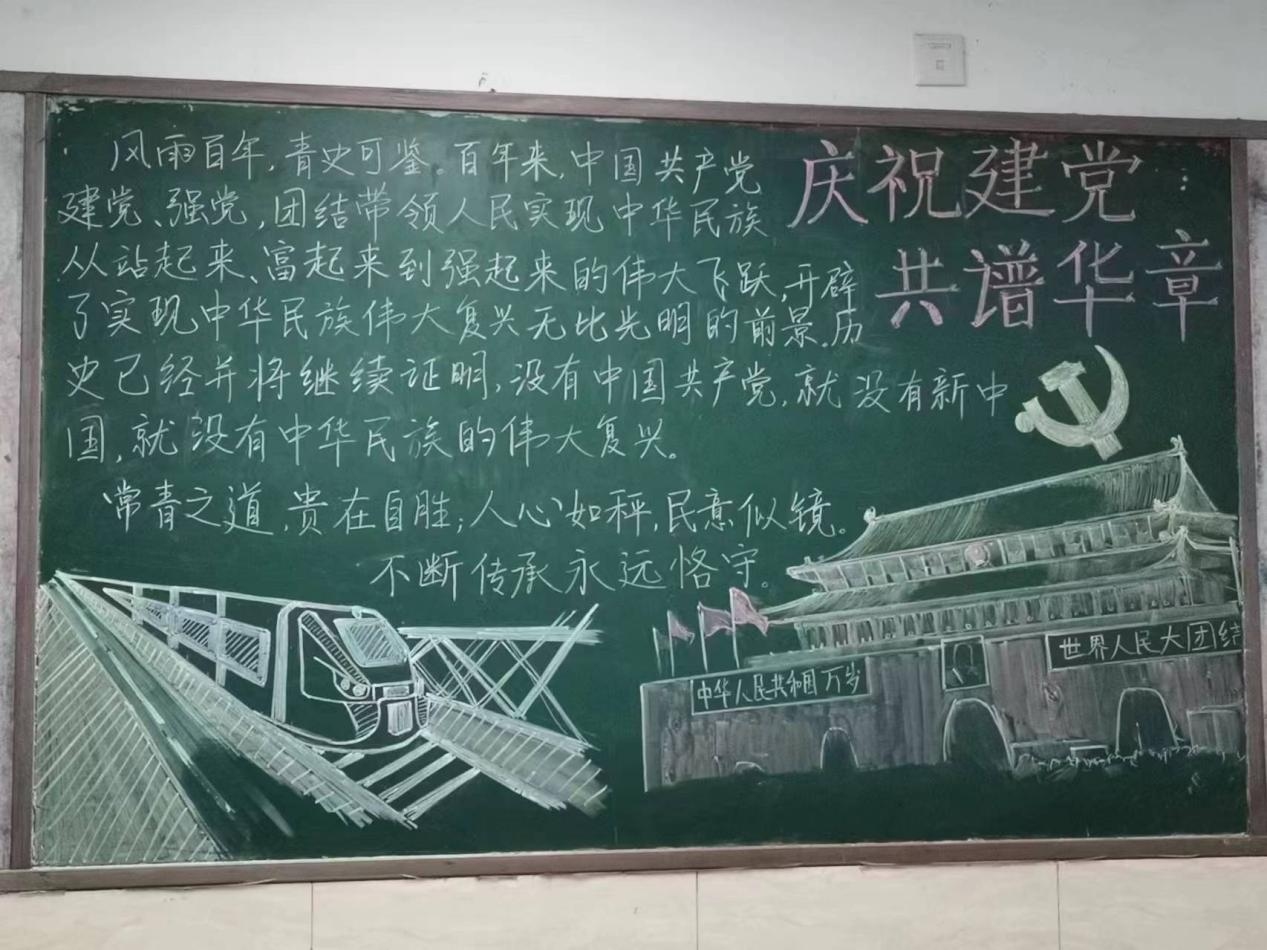 风雨百年，青史可鉴。百年来，中国共产党
建党、强党，团结带领人民实现中华民族
从站起来、富起来到强起来的伟大飞跃，开辟
了实现中华民族伟大复兴无比光明的前景。历
史已经并将继续证明，没有中国共产党，就没有新中
国，就没有中华民族的伟大复兴。
常青之道，贵在自胜；人心如秤，民意似镜。
不断传承永远恪守。
庆祝建党
共谱华章
中华人民共和国万岁
世界人民大团结